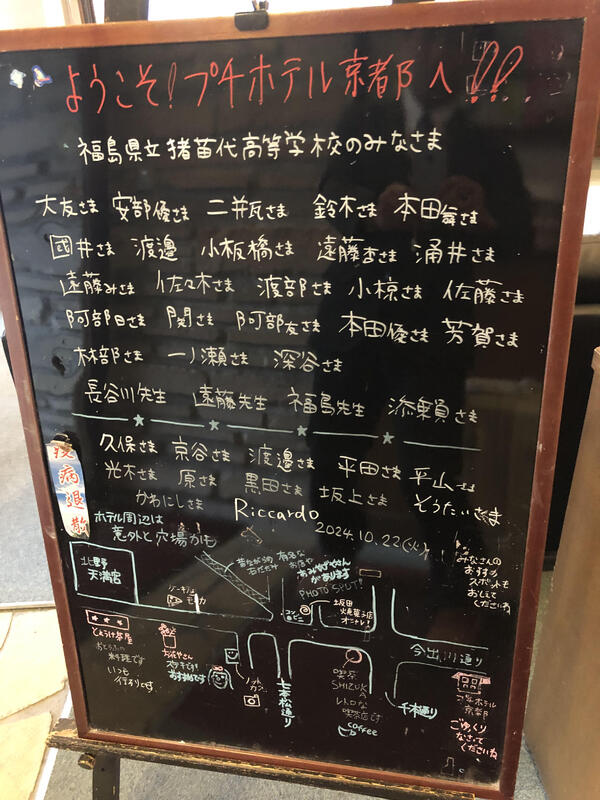 ようこそ!プチホテル京都へ!!
福島県立猪苗代高等学校のみなさま
大友さま 安部優さま 二瓶さま 鈴木さま 本田舞さま
國井さま 渡邉 小板橋さま 遠藤杏さま 涌井さま
遠藤みさま 佐々木さま 渡部さま 小椋さま 佐藤さま
阿部日さま 関さま 阿部友さま 本田優さま 芳賀さま
林部さま 一ノ瀬さま 深谷さま
長谷川先生 遠藤先生 福島先生 添乗員さま
久保さま 京谷さま 渡邉さま 平田さま 平山さま
光本さま 原さま 黒田さま 坂上さま そうたいさま
かわにしさま Riccardo 2024.10.22(火)
疫病退散
ホテル周辺は
意外と穴場かも
北野
天満宮
昔ながらの
石だたみ
有名な
お店や
あみやきやさん
があります
PHOTO SPOT!!
みなさんの
おすすめ
スポットも
おしえて
くださいね
ケーキ
モカ
コン
ビニ
坂田
焼菓子店
オニャレ!
今出川通り
とようけ茶屋
おとうふの
料理です
いつも
行列です
お花やさん
ステキです!
おすすめです
ノット
カフェ
七本松通り
喫茶
SHIZUKA
レトロな
喫茶店です
coffee
千本通り
プチホテル
京都
ごゆっくり
なさって
くださいね